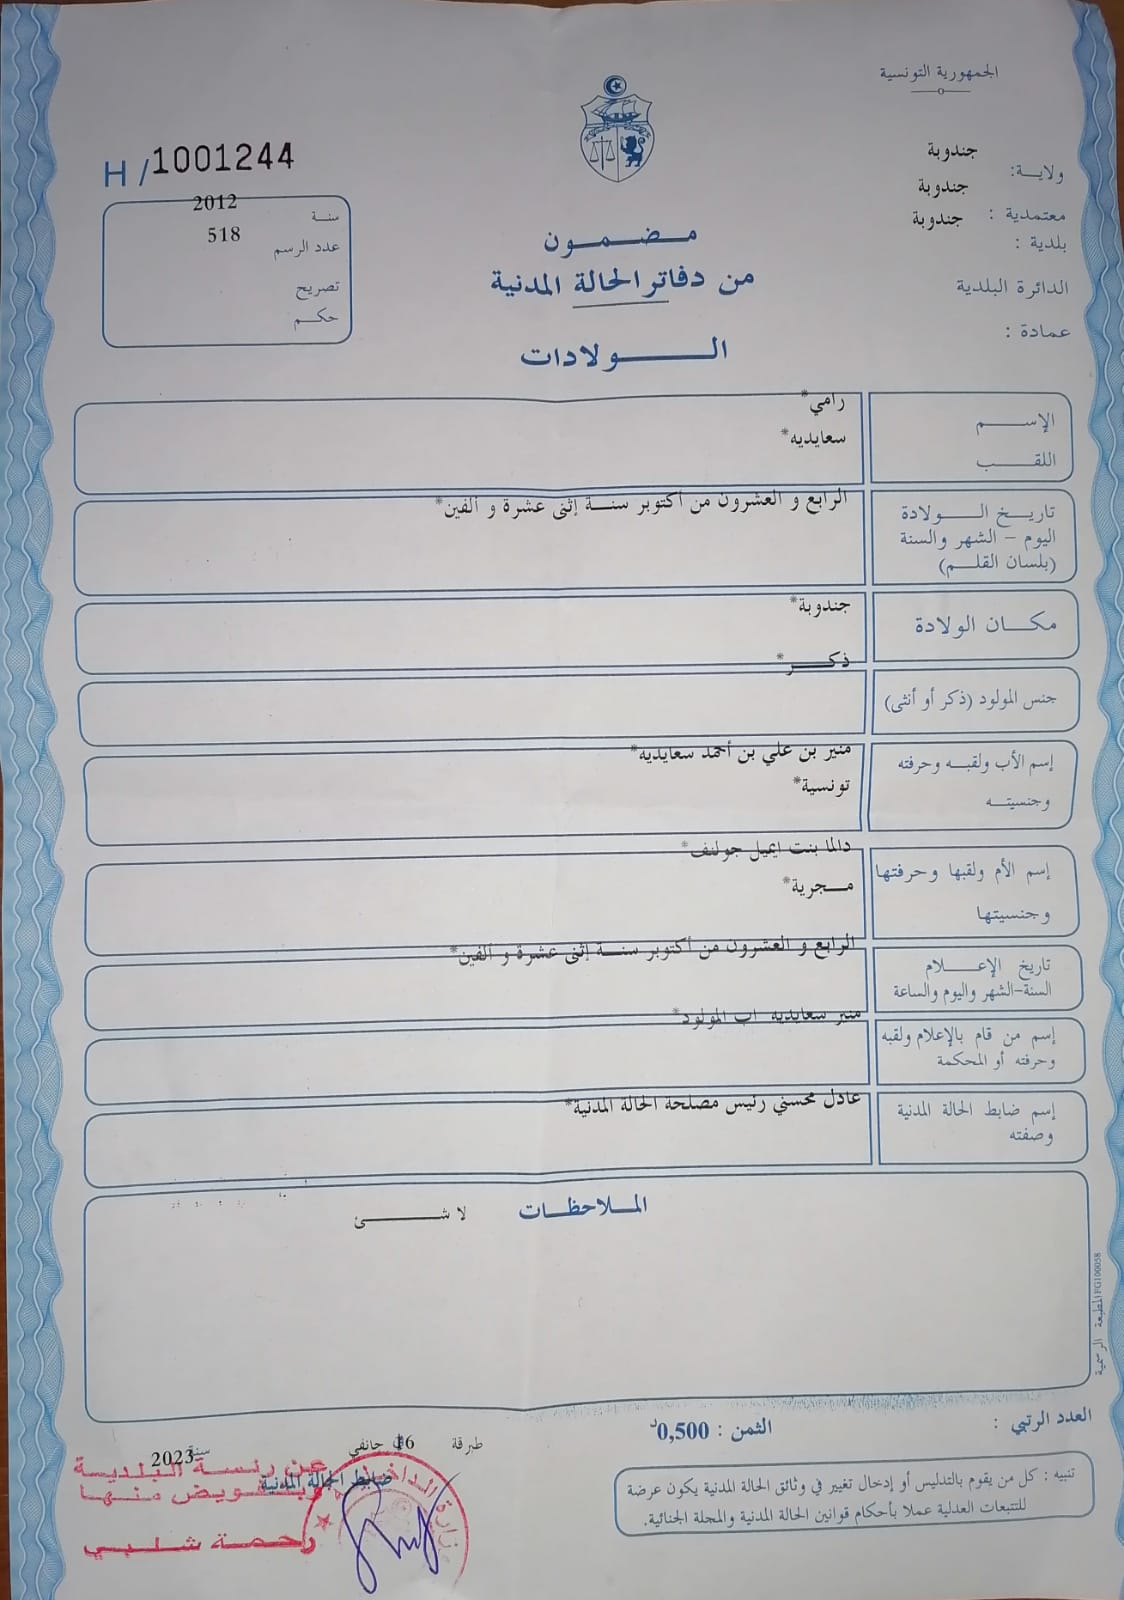 الجمهورية التونسية
ولاية: جندوبة
معتمدية : جندوبة
بلدية : جندوبة
الدائرة البلدية
عمادة :
H/1001244
سنة 2012
عدد الرسم 518
تصريح
حكم
مضمون
من دفاتر الحالة المدنية
الولادات
الإسم رامي*
اللقب سعايديه*
تاريخ الولادة
اليوم - الشهر والسنة
(بلسان القلم)
الرابع و العشرون من أكتوبر سنة إثنى عشرة و ألفين*
مكان الولادة جندوبة*
جنس المولود (ذكر أو أنثى) ذكر*
إسم الأب ولقبه وحرفته
وجنسيته
منير بن علي بن أحمد سعايديه*
تونسية*
إسم الأم ولقبها وحرفتها
وجنسيتها
دالما بنت ايميل جولنف*
مجرية*
تاريخ الإعلام
السنة-الشهر واليوم والساعة
الرابع و العشرون من أكتوبر سنة إثنى عشرة و ألفين*
إسم من قام بالإعلام ولقبه
وحرفته أو المحكمة
منير سعايديه اب المولود*
إسم ضابط الحالة المدنية
وصفته
عادل محسني رئيس مصلحة الحالة المدنية*
الملاحظات
لا شئ
المطبعة الرسمية FG100058
العدد الرتبي :
الثمن : 0,500د
تنبيه : كل من يقوم بالتدليس أو إدخال تغيير في وثائق الحالة المدنية يكون عرضة
للتتبعات العدلية عملا بأحكام قوانين الحالة المدنية والمجلة الجنائية.
طبرقة 16 جانفي سنة 2023
ضابط الحالة المدنية
عن رئيسة البلدية
وبتفويض منها
رحمة شلبي